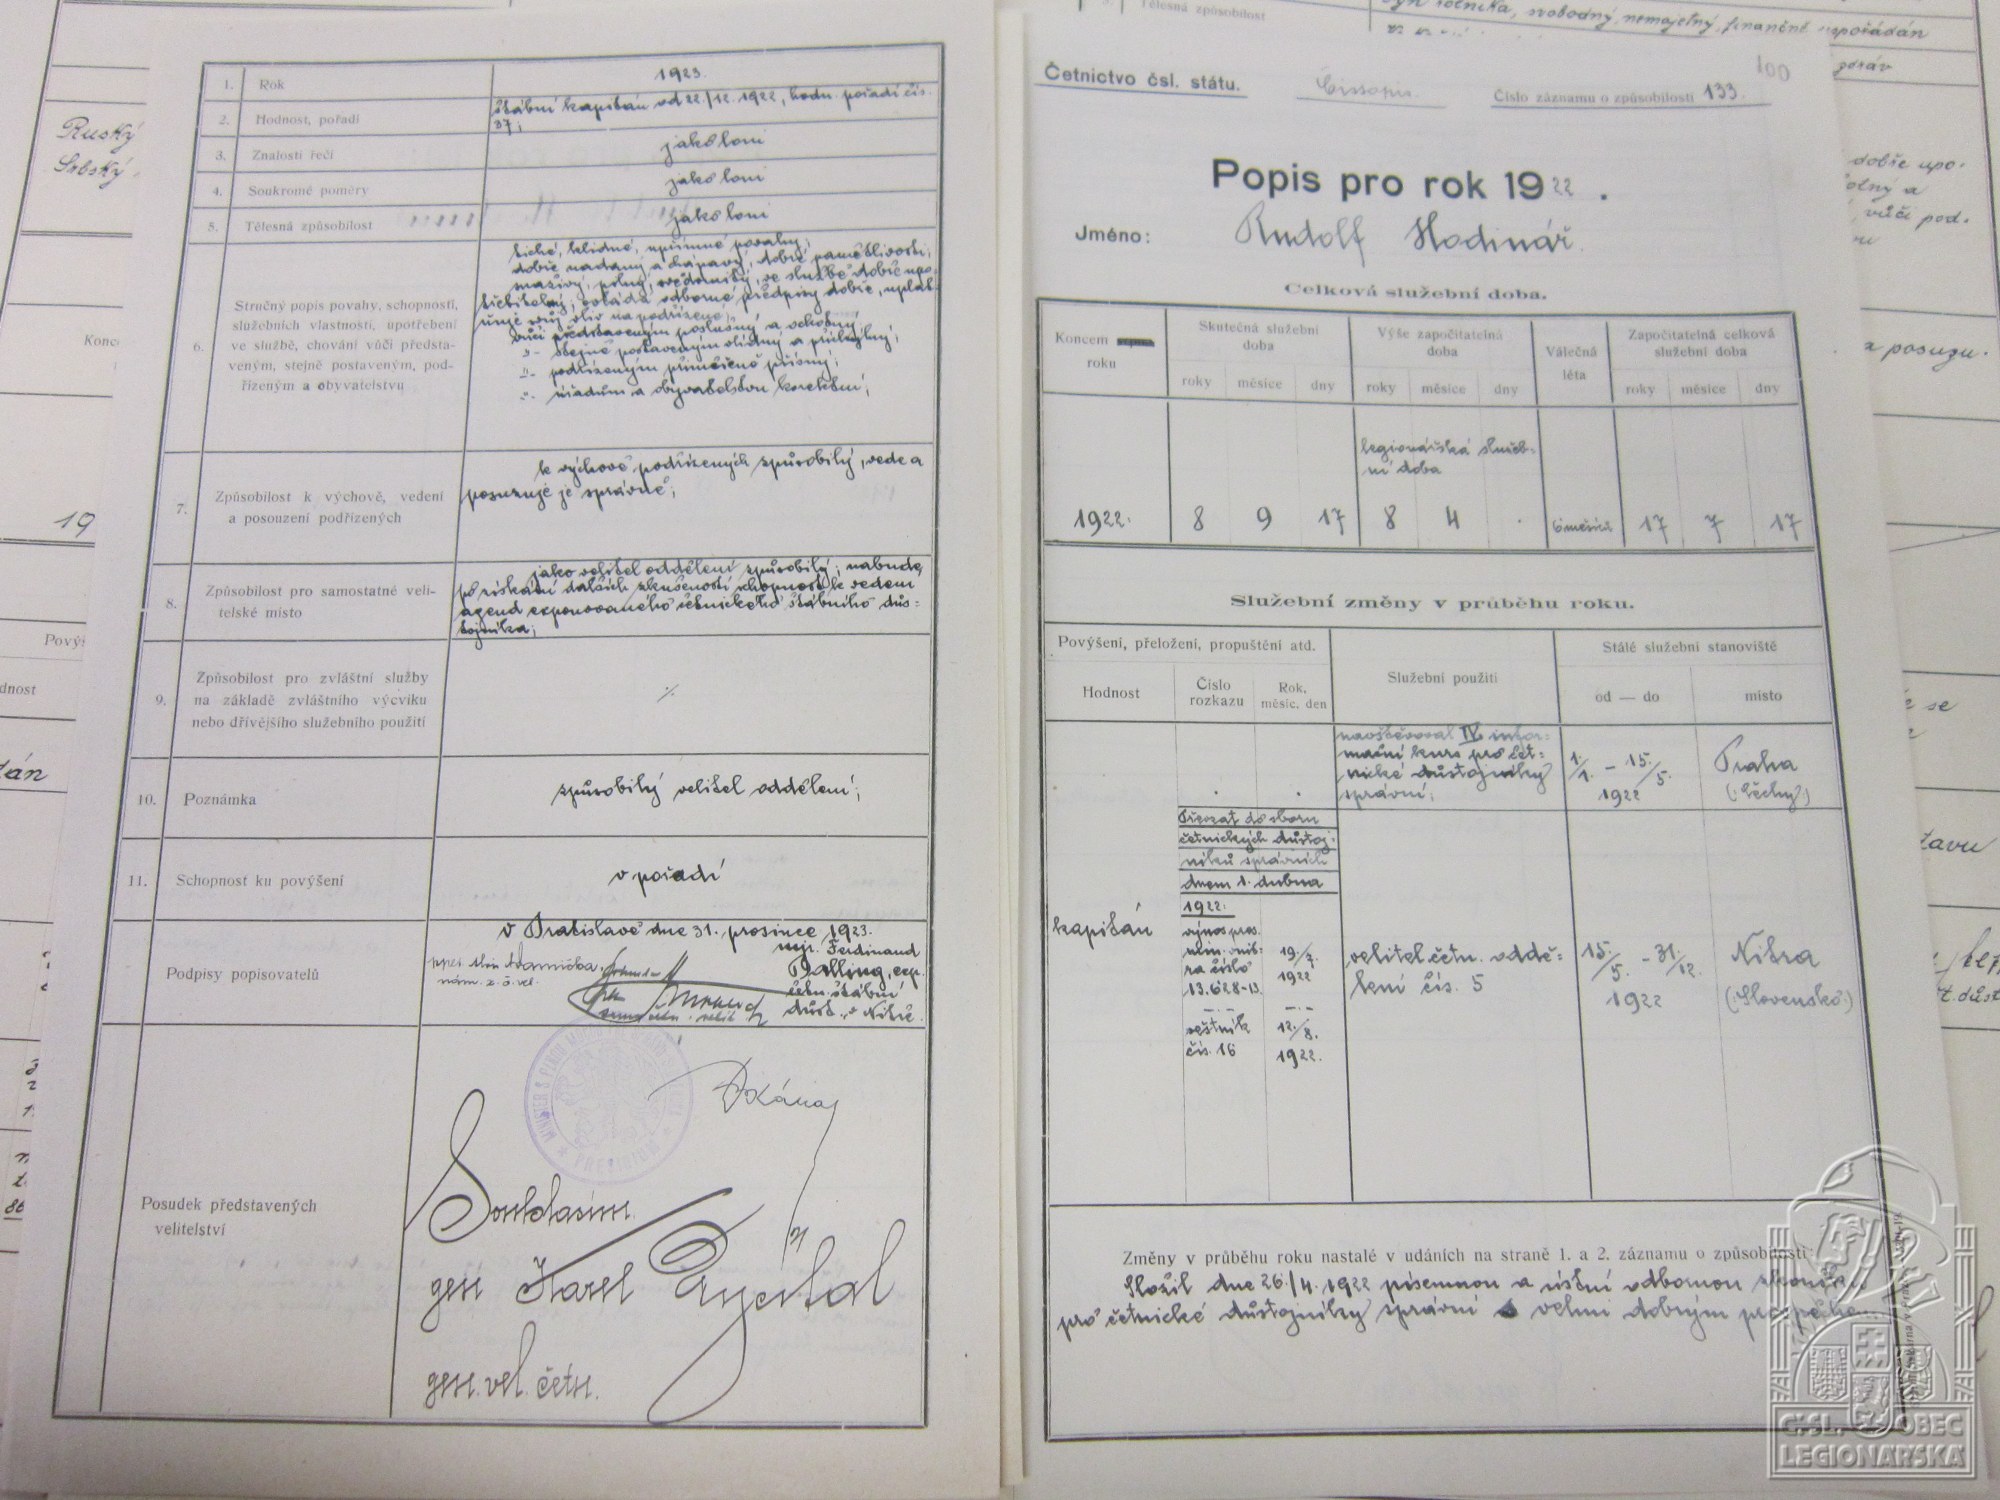 1. Rok 1923.
2. Hodnost, pořadí
štábní kapitán od 22./12. 1922, hodn. pořadí čís.
37;
3. Znalosti řečí jako loni
4. Soukromé poměry jako loni
5. Tělesná způsobilost jako loni
6. Stručný popis povahy, schopností,
služebních vlastností, upotřebení
ve službě, chování vůči předsta-
veným, stejně postaveným, pod-
řízeným a obyvatelstvu
tiché, klidné, upřímné povahy;
dobře nadaný a chápavý, dobré pamětlivosti;
snaživý, pilný, svědomitý, ve službě dobře upo-
třebitelný; ovládá odborné předpisy dobře, uplat-
ňuje svůj vliv na podřízené;
vůči představeným poslušný a ochotný;
-"- stejně postaveným vlídný a přívětivý;
-"- podřízeným přiměřeně přísný;
-"- úřadům a obyvatelstvu korektní;
7. Způsobilost k výchově, vedení
a posouzení podřízených
k výchově podřízených způsobilý, vede a
posuzuje je správně;
8. Způsobilost pro samostatné veli-
telské místo
jako velitel oddělení způsobilý; nabude,
po získání dalších zkušeností schopnost k vedení
agend exponovaného četnického štábního důs-
tojníka;
9. Způsobilost pro zvláštní služby
na základě zvláštního výcviku
nebo dřívějšího služebního použití
·/·
10. Poznámka způsobilý velitel oddělení;
11. Schopnost ku povýšení v pořadí
Podpisy popisovatelů
V Bratislavě dne 31. prosince 1923.
mjr. Ferdinand
Balling, exp.
četn. štábní
důst. v Nitře.
Posudek představených
velitelství
Souhlasím.
gen Karel
gen. vel. četn.
Četnictvo čsl. státu.
Číslo záznamu o způsobilosti 133.
100
Popis pro rok 1922.
Jméno: Rudolf Hodinář.
Celková služební doba.
Koncem
roku
Skutečná služební
doba
Výše započitatelná
doba
Válečná
léta
Započitatelná celková
služební doba
roky měsíce dny roky měsíce dny roky měsíce dny
legionářská služeb-
ní doba
1922. 8 9 17 8 4 . 6 měsíců 17 7 17
Služební změny v průběhu roku.
Povýšení, přeložení, propuštění atd.
Služební použití
Stálé služební stanoviště
Hodnost
Číslo
rozkazu
Rok,
měsíc, den
od — do
místo
navštěvoval IV. infor-
mační kurs pro čet-
nické důstojníky
správní;
1./1. – 15./5.
1922
Praha
(Čechy)
Převzat do sboru
četnických důstoj-
níků správních
dnem 1. dubna
1922.
kapitán
výnos pres.
min. vnit-
ra číslo
13.628-13.
19./7.
1922
věstník
čís. 16
12./8.
1922.
velitel četn. oddě-
lení čís. 5
15./5. – 31./12.
1922
Nitra
(Slovensko)
Změny v průběhu roku nastalé v udáních na straně 1. a 2. záznamu o způsobilosti:
Složil dne 26./4. 1922 písemnou a ústní odbornou zkoušku
pro četnické důstojníky správní s velmi dobrým prospěchem
Tělesná způsobilost
syn rolníka, svobodný, nemajetný, finančně uspořádán
zdráv
Ruský
Srbský
19
dobře upo-
vůči pod-
a posuzu-
ČSL. OBEC
LEGIONÁŘSKÁ